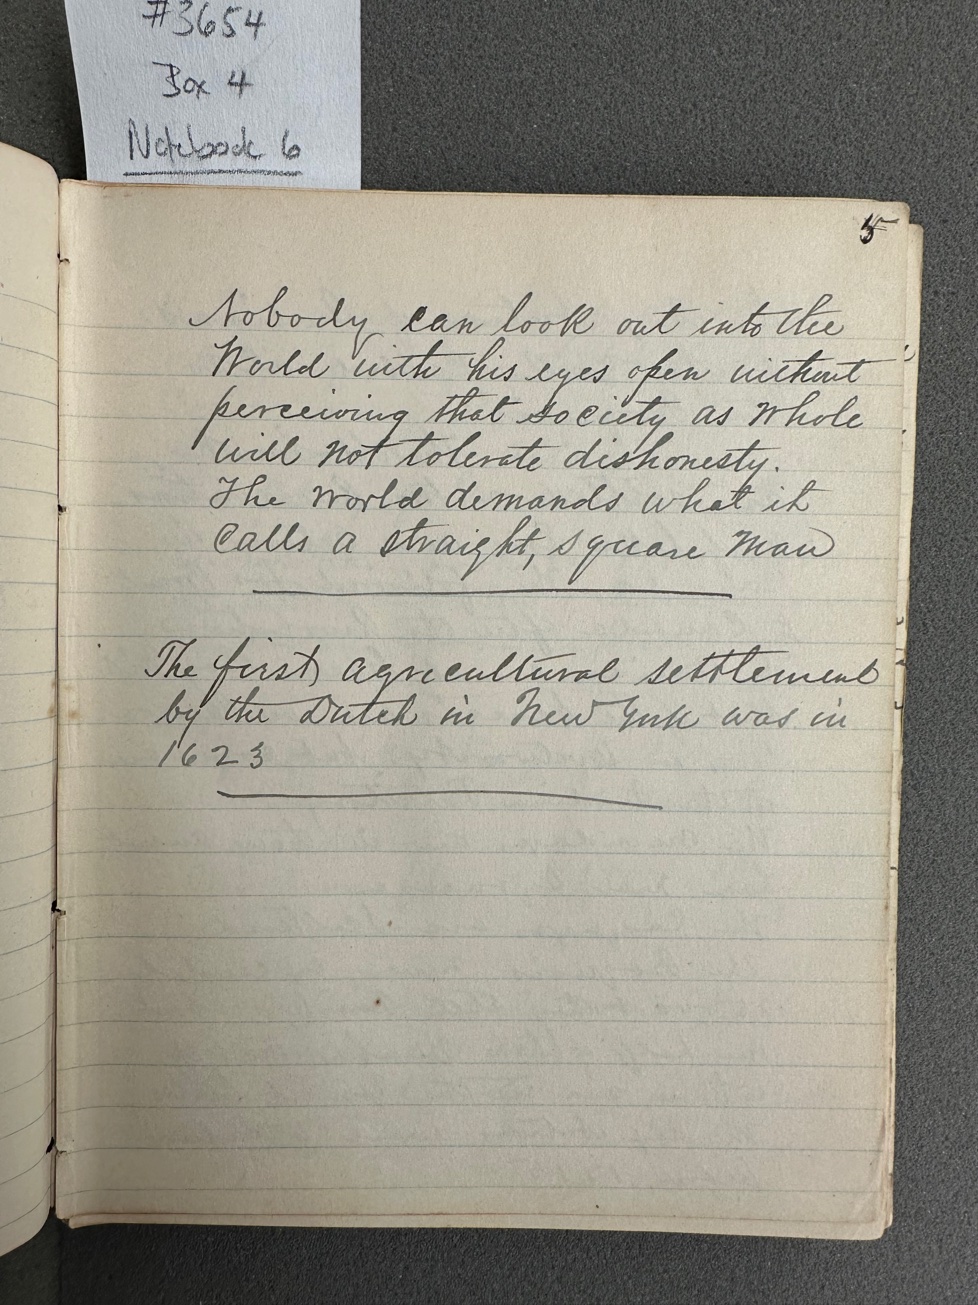 #3654
Box 4
Notebook 6
5
Nobody can look out into the
World with his eyes open without
perceiving that society as whole
will not tolerate dishonesty.
The world demands what it
Calls a straight, square Man
The first agricultural settlement
by the Dutch in New York was in
1623